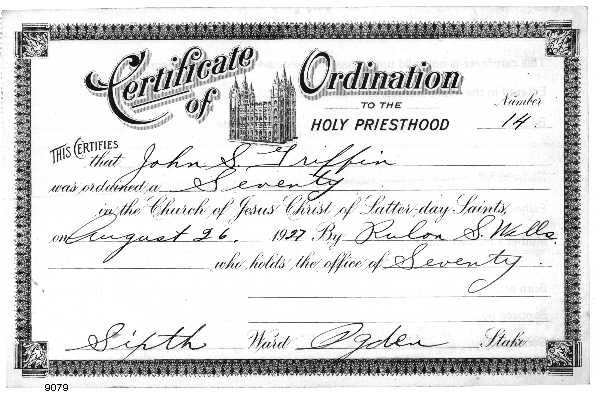 Certificate of Ordination
TO THE
HOLY PRIESTHOOD
Number
14.
THIS CERTIFIES
that John S. Griffin
was ordained a Seventy
in the Church of Jesus Christ of Latter-day Saints,
on August 26. 1927 By Rulon S. Wells.
who holds the office of Seventy.
Sixth Ward Ogden Stake
9079